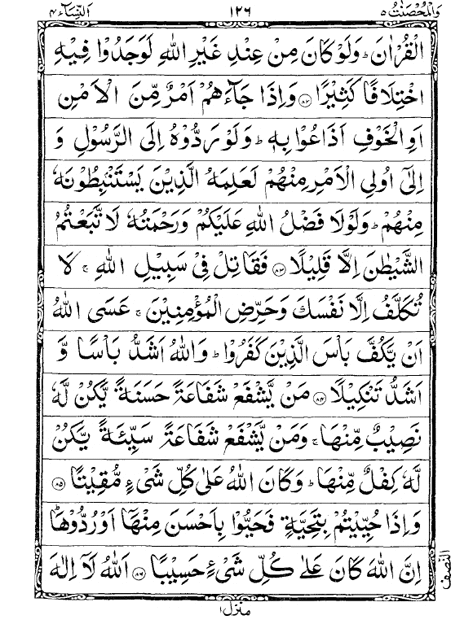 وَالْمُحْصَنٰتُ ٥ ١٢٦ اَلنِّسَآء ٤
الْقُرْاٰنَ ؕ وَلَوْ كَانَ مِنْ عِنْدِ غَيْرِ اللّٰهِ لَوَجَدُوْا فِيْهِ
اخْتِلَافًا كَثِيْرًا ﴿٨٢﴾ وَاِذَا جَآءَهُمْ اَمْرٌ مِّنَ الْاَمْنِ
اَوِ الْخَوْفِ اَذَاعُوْا بِهٖ ؕ وَلَوْ رَدُّوْهُ اِلَى الرَّسُوْلِ وَ
اِلٰٓى اُولِى الْاَمْرِ مِنْهُمْ لَعَلِمَهُ الَّذِيْنَ يَسْتَنْۢبِطُوْنَهٗ
مِنْهُمْ ؕ وَلَوْلَا فَضْلُ اللّٰهِ عَلَيْكُمْ وَرَحْمَتُهٗ لَاتَّبَعْتُمُ
الشَّيْطٰنَ اِلَّا قَلِيْلًا ﴿٨٣﴾ فَقَاتِلْ فِىْ سَبِيْلِ اللّٰهِ ۚ لَا
تُكَلَّفُ اِلَّا نَفْسَكَ وَحَرِّضِ الْمُؤْمِنِيْنَ ۚ عَسَى اللّٰهُ
اَنْ يَّكُفَّ بَاْسَ الَّذِيْنَ كَفَرُوْا ؕ وَاللّٰهُ اَشَدُّ بَاْسًا وَّ
اَشَدُّ تَنْكِيْلًا ﴿٨٤﴾ مَنْ يَّشْفَعْ شَفَاعَةً حَسَنَةً يَّكُنْ لَّهٗ
نَصِيْبٌ مِّنْهَا ۚ وَمَنْ يَّشْفَعْ شَفَاعَةً سَيِّئَةً يَّكُنْ
لَّهٗ كِفْلٌ مِّنْهَا ؕ وَكَانَ اللّٰهُ عَلٰى كُلِّ شَىْءٍ مُّقِيْتًا ﴿٨٥﴾
وَاِذَا حُيِّيْتُمْ بِتَحِيَّةٍ فَحَيُّوْا بِاَحْسَنَ مِنْهَآ اَوْ رُدُّوْهَا ؕ
اِنَّ اللّٰهَ كَانَ عَلٰى كُلِّ شَىْءٍ حَسِيْبًا ﴿٨٦﴾ اَللّٰهُ لَآ اِلٰهَ
النصف
منزل ١